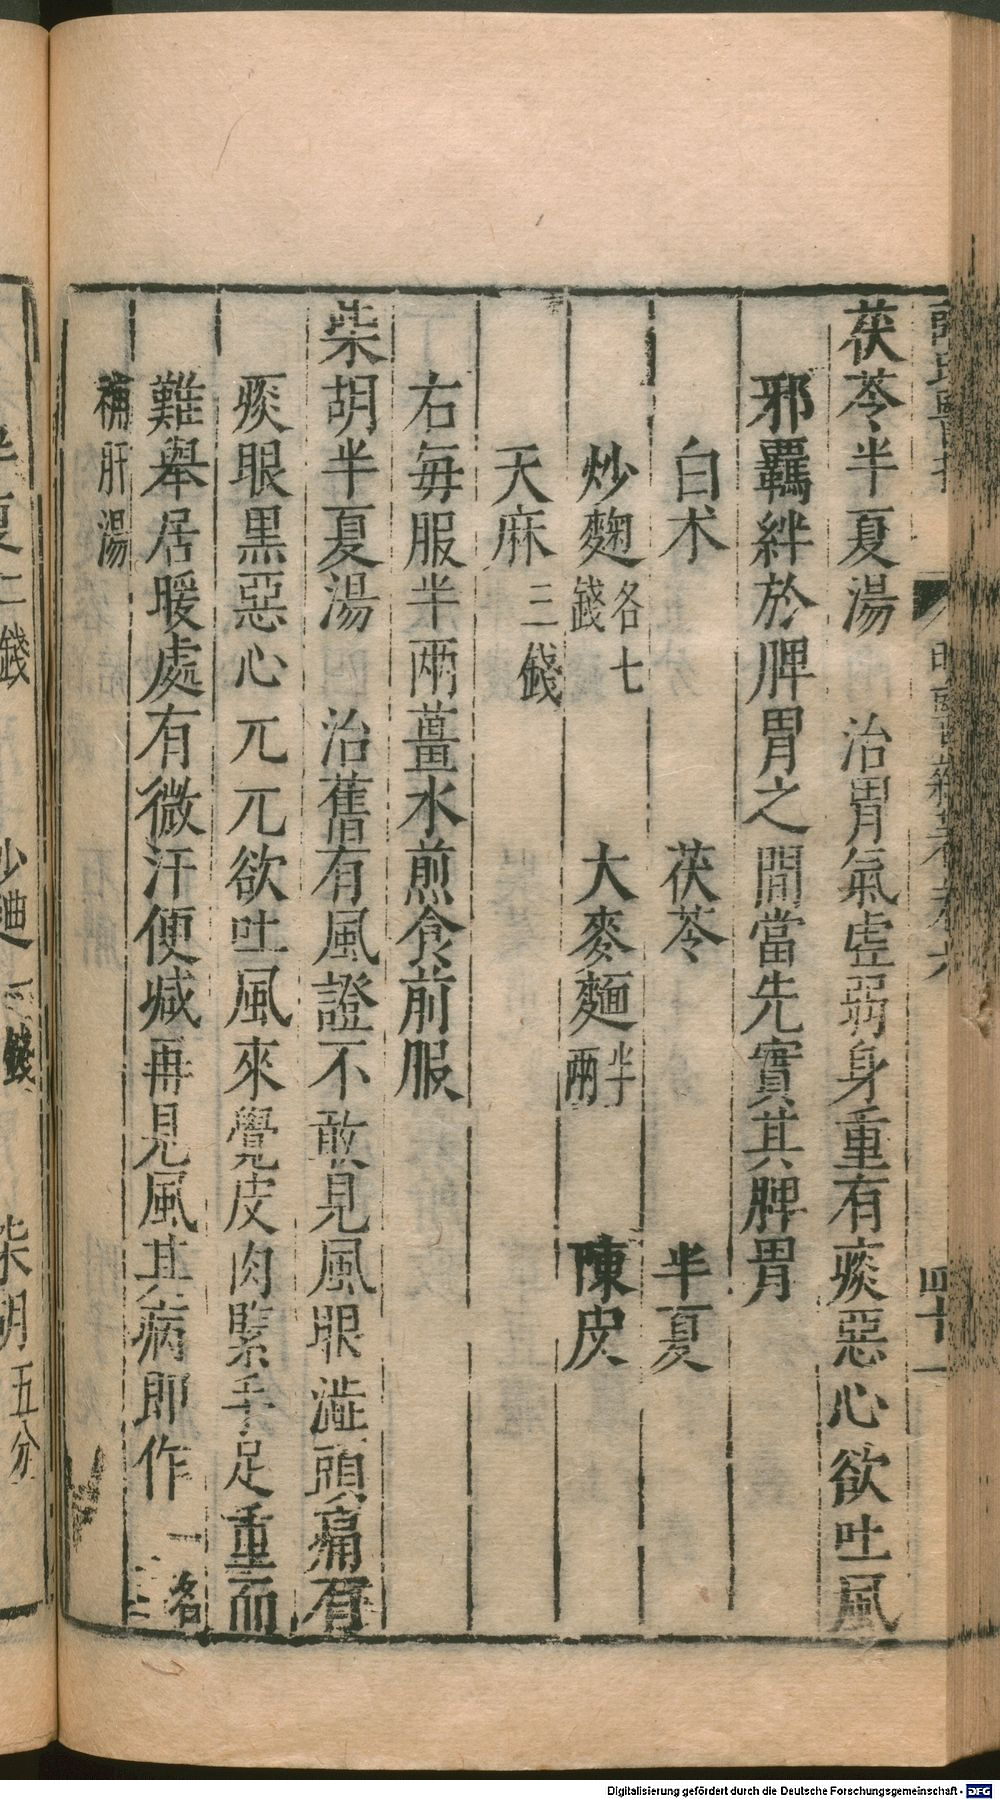 四十一
茯苓半夏湯　治胃氣虛弱身重有痰惡心欲吐風
邪羈絆於脾胃之間當先實其脾胃
白术　茯苓　半夏
炒麯各七錢　大麥麵半兩　陳皮
天麻三錢
右每服半兩薑水煎食前服
柴胡半夏湯　治舊有風證不敢見風眼澁頭痛有
痰眼黑惡心兀兀欲吐風來覺皮肉緊手足重而
難舉居暖處有微汗便減再見風其病即作一名
補肝湯
半夏二錢　炒麯三錢　柴胡五分
Digitalisierung gefördert durch die Deutsche Forschungsgemeinschaft - DFG